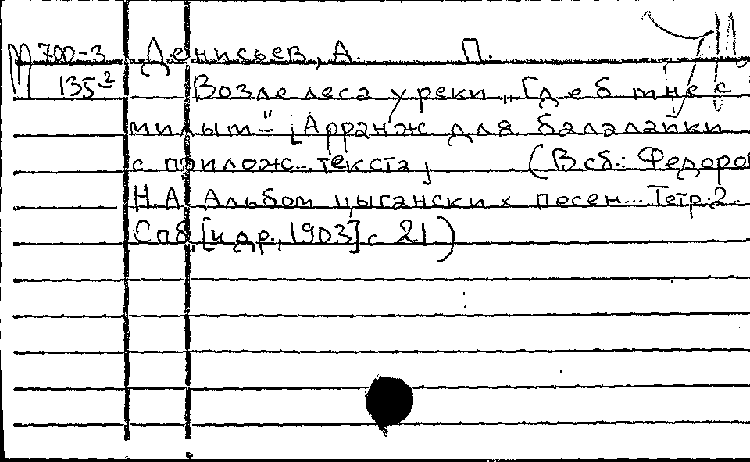 М 700-3 Денисьев, А. П.
135-2 Возле леса у реки. „Где б мне с
милым“ [Арранж. для балалайки
с прилож. текста] (В сб.: Федоров
Н.А. Альбом цыганских песен. Тетр. 2.
Спб, [и др., 1903] с. 21)